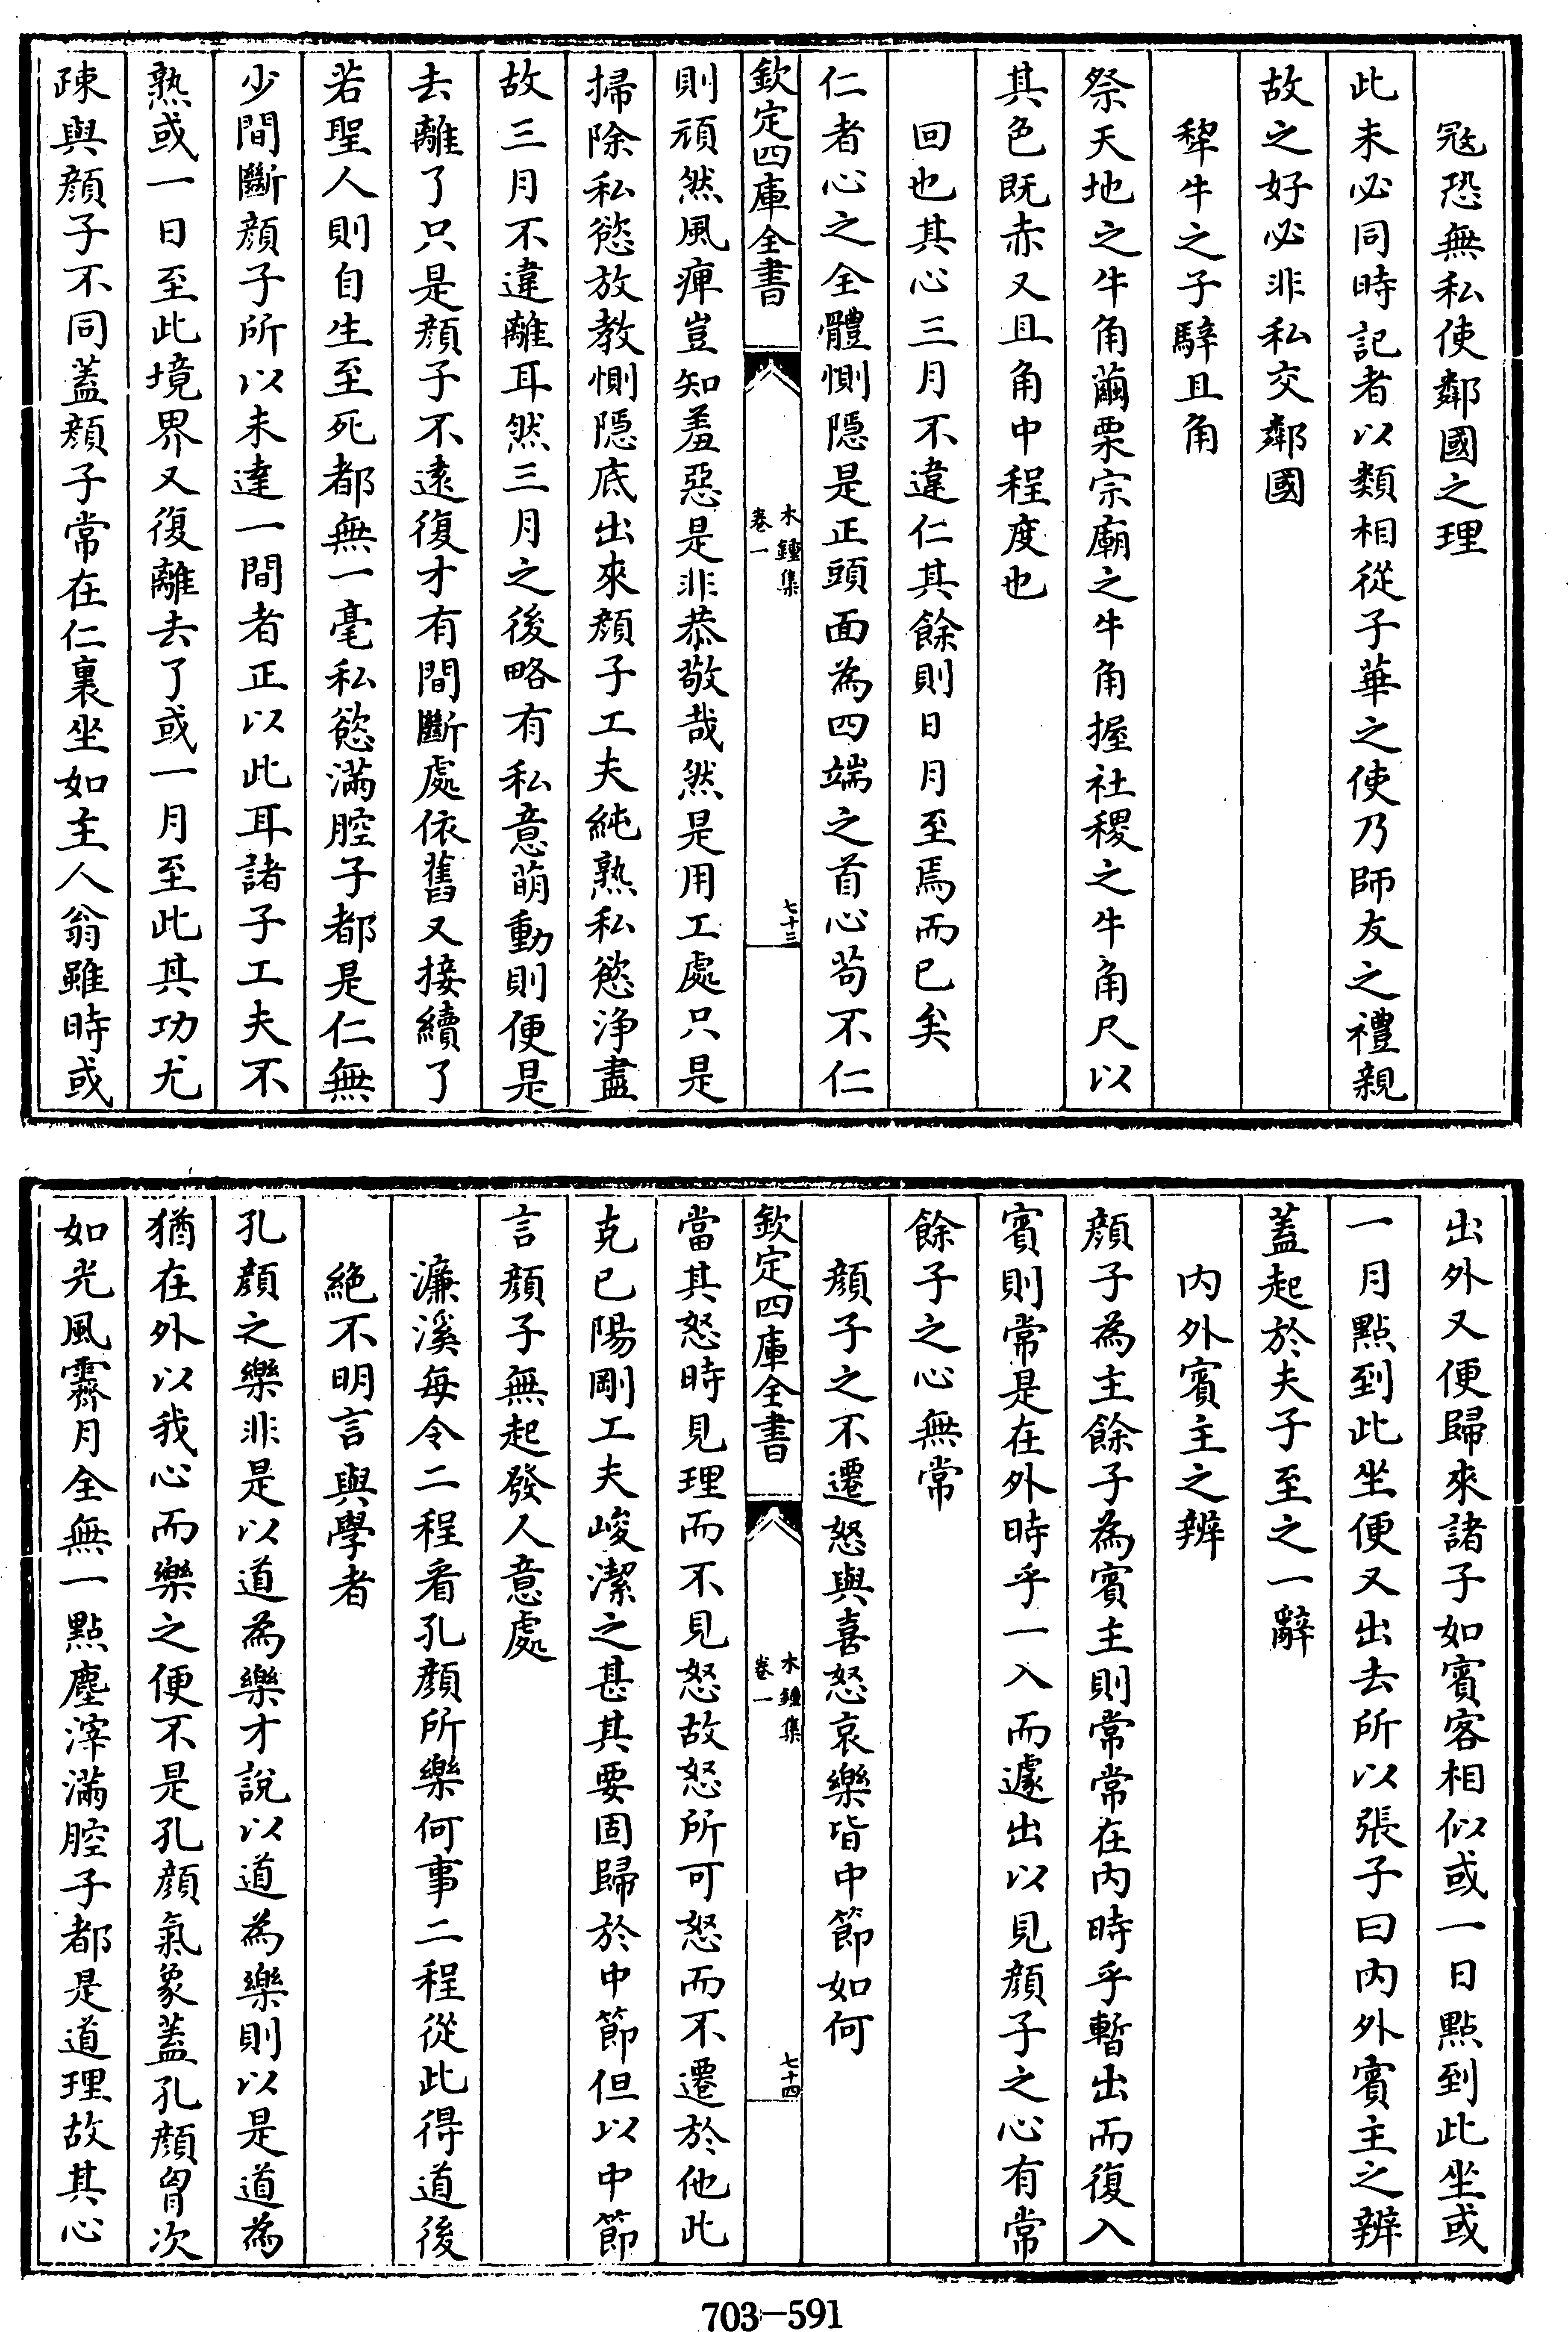 冦恐無私使鄰國之理
此未必同時記者以類相從子華之使乃師友之禮親
故之好必非私交鄰國
犂牛之子騂且角
祭天地之牛角繭栗宗廟之牛角握社稷之牛角尺以
其色既赤又且角中程度也
回也其心三月不違仁其餘則日月至焉而已矣
仁者心之全體惻隠是正頭面為四端之首心苟不仁
欽定四庫全書
木鍾集
卷一
七十三
則頑然風痺豈知羞惡是非恭敬哉然是用工處只是
掃除私慾放教惻隠底出來顔子工夫純熟私慾浄盡
故三月不違離耳然三月之後略有私意萌動則便是
去離了只是顔子不逺復才有間斷處依舊又接續了
若聖人則自生至死都無一毫私慾滿腔子都是仁無
少間斷顔子所以未達一間者正以此耳諸子工夫不
熟或一日至此境界又復離去了或一月至此其功尤
疎與顔子不同蓋顔子常在仁裏坐如主人翁雖時或
出外又便歸來諸子如賓客相似或一日點到此坐或
一月點到此坐便又出去所以張子曰内外賓主之辨
蓋起於夫子至之一辭
内外賓主之辨
顔子為主餘子為賓主則常常在内時乎暫出而復入
賓則常是在外時乎一入而遽出以見顔子之心有常
餘子之心無常
顔子之不遷怒與喜怒哀樂皆中節如何
欽定四庫全書
木鍾集
卷一
七十四
當其怒時見理而不見怒故怒所可怒而不遷於他此
克已陽剛工夫峻潔之甚其要固歸於中節但以中節
言顔子無起發人意處
濂溪每令二程看孔顔所樂何事二程從此得道後
絶不明言與學者
孔顔之樂非是以道為樂才說以道為樂則以是道為
猶在外以我心而樂之便不是孔顔氣象蓋孔顔胷次
如光風霽月全無一點塵滓滿腔子都是道理故其心
703-591